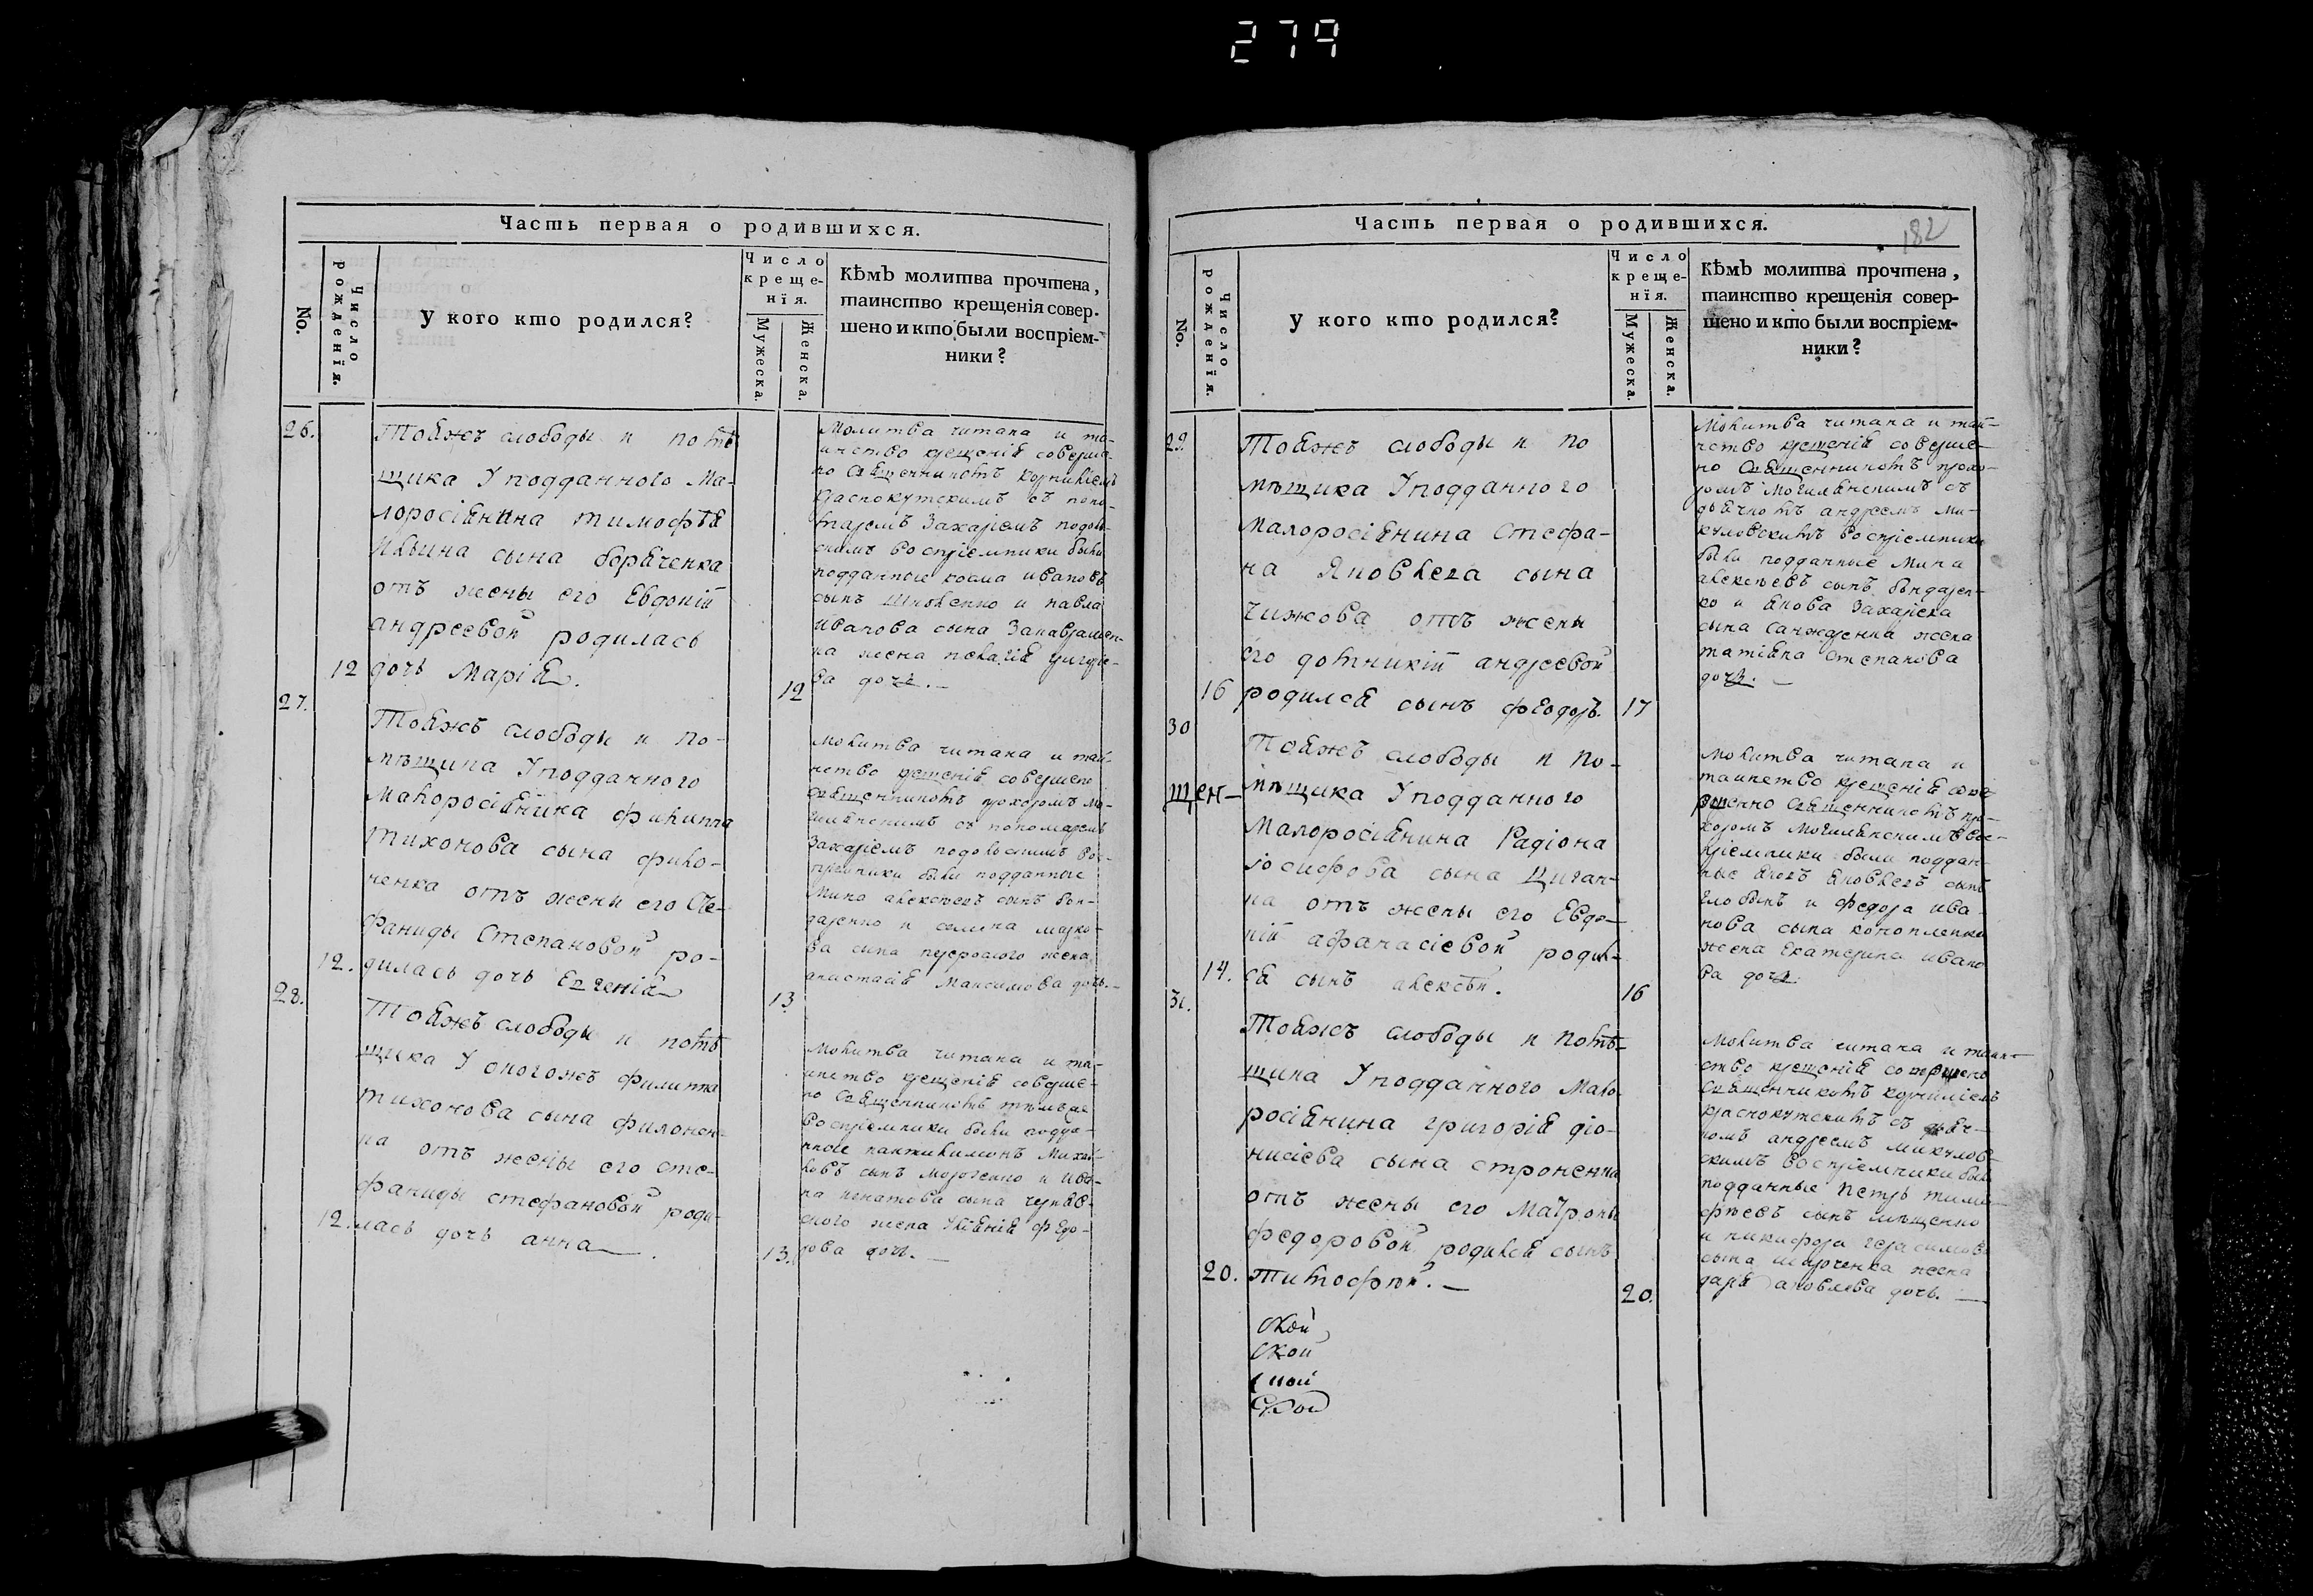 279
Часть первая о родившихся.
No.
Число рожденїя.
У кого кто родился?
Число
креще-
нїя.
Мужеска.
Женска.
Кѣмъ молитва прочтена,
таинство крещенія совер-
шено и кто были воспріем-
ники?
26.
Тояжъ слободы и помѣ
щика У подданного Ма-
лоросіянина тимофѣя
Ильина сына
отъ жены его Евдокіи
андреевои родилась
12 дочь Марія.
12
Молитва читана и та-
инство крещенія соверше-
но священникомъ корниліемъ
краснокутскимъ съ поно-
маремъ Захаріемъ подол-
скимъ воспріемники были
подданные косма ивановъ
сынъ и павла
иванова сына
на жена пелагія григорие-
ва дочь.
27.
Тояжъ слободы и по-
мѣщика У подданного
Малоросіянина филиппа
тихонова сына фило-
ненка отъ жены его Сте-
фаниды Степановои ро-
12. дилась дочь Евгенія
13
Молитва читана и таи-
нство крещенія совершено
священникомъ прохоромъ мо-
гилянскимъ съ пономаремъ
Захаріемъ подолскимъ вос-
пріемники были подданные
Мина алексѣевъ сынъ бон-
даренко и марко-
ва сына жена
анастасія Максимова дочь.
28.
Тояжъ слободы и помѣ
щика У оногожъ филиппа
тихонова сына филонен-
ка отъ жены его сте-
фаниды стефановои роди-
12. лась дочь анна
13.
Молитва читана и та-
инство крещенія соверше-
но священникомъ тѣмъже
воспріемники были подда-
нные пантилимонъ Михаи-
ловъ сынъ и ива-
на игнатова сына черняв-
ского жена Уліянія федо-
рова дочь.
Часть первая о родившихся.
182
No.
Число рожденїя.
У кого кто родился?
Число
креще-
нїя.
Мужеска.
Женска.
Кѣмъ молитва прочтена,
таинство крещенія совер-
шено и кто были воспріем-
ники?
29.
Тояжъ слободы и по
мѣщика У подданного
Малоросіянина Стефа-
на Яковлева сына
Чижова отъ жены
его домникіи андреевои
16 родился сынъ феодоръ.
17
Молитва читана и таи-
нство крещенія соверше-
но священникомъ прохо-
ромъ могилянскимъ съ
дьячкомъ андреемъ ми-
куловскимъ воспріемники
были подданные Мина
алексѣевъ сынъ бондарен-
ко и якова Захариева
сына жена
татіяна степанова
дочь.
30
щен-
Тояжъ слободы и по-
мѣщика У подданного
Малоросіянина Радіона
іосифова сына Циган-
ка отъ жены его Евдо-
кіи афанасіевои родил-
14. ся сынъ алексѣи.
16
Молитва читана и
таинство крещенія сове-
ршенно священникомъ про-
хоромъ могилянскимъ вос-
пріемники были поддан-
ные яковъ яковлевъ сынъ
и федора ива-
нова сына коноплянки
жена Екатерина ивано
ва дочь.
31.
Тояжъ слободы и помѣ-
щика У подданного Мало-
росіянина григорія діо-
нисіева сына строненка
отъ жены его Матроны
федоровои родился сынъ
20. тимофѣи.
20.
Молитва читана и таин-
ство крещенія совершено
священникомъ корниліемъ
краснокутскимъ съ дьяч-
комъ андреемъ микулов-
скимъ воспріемники были
подданные петръ тимо-
фѣевъ сынъ
и никифора герасимова
сына жена
дарія яковлева дочь.
скои
скои
скои